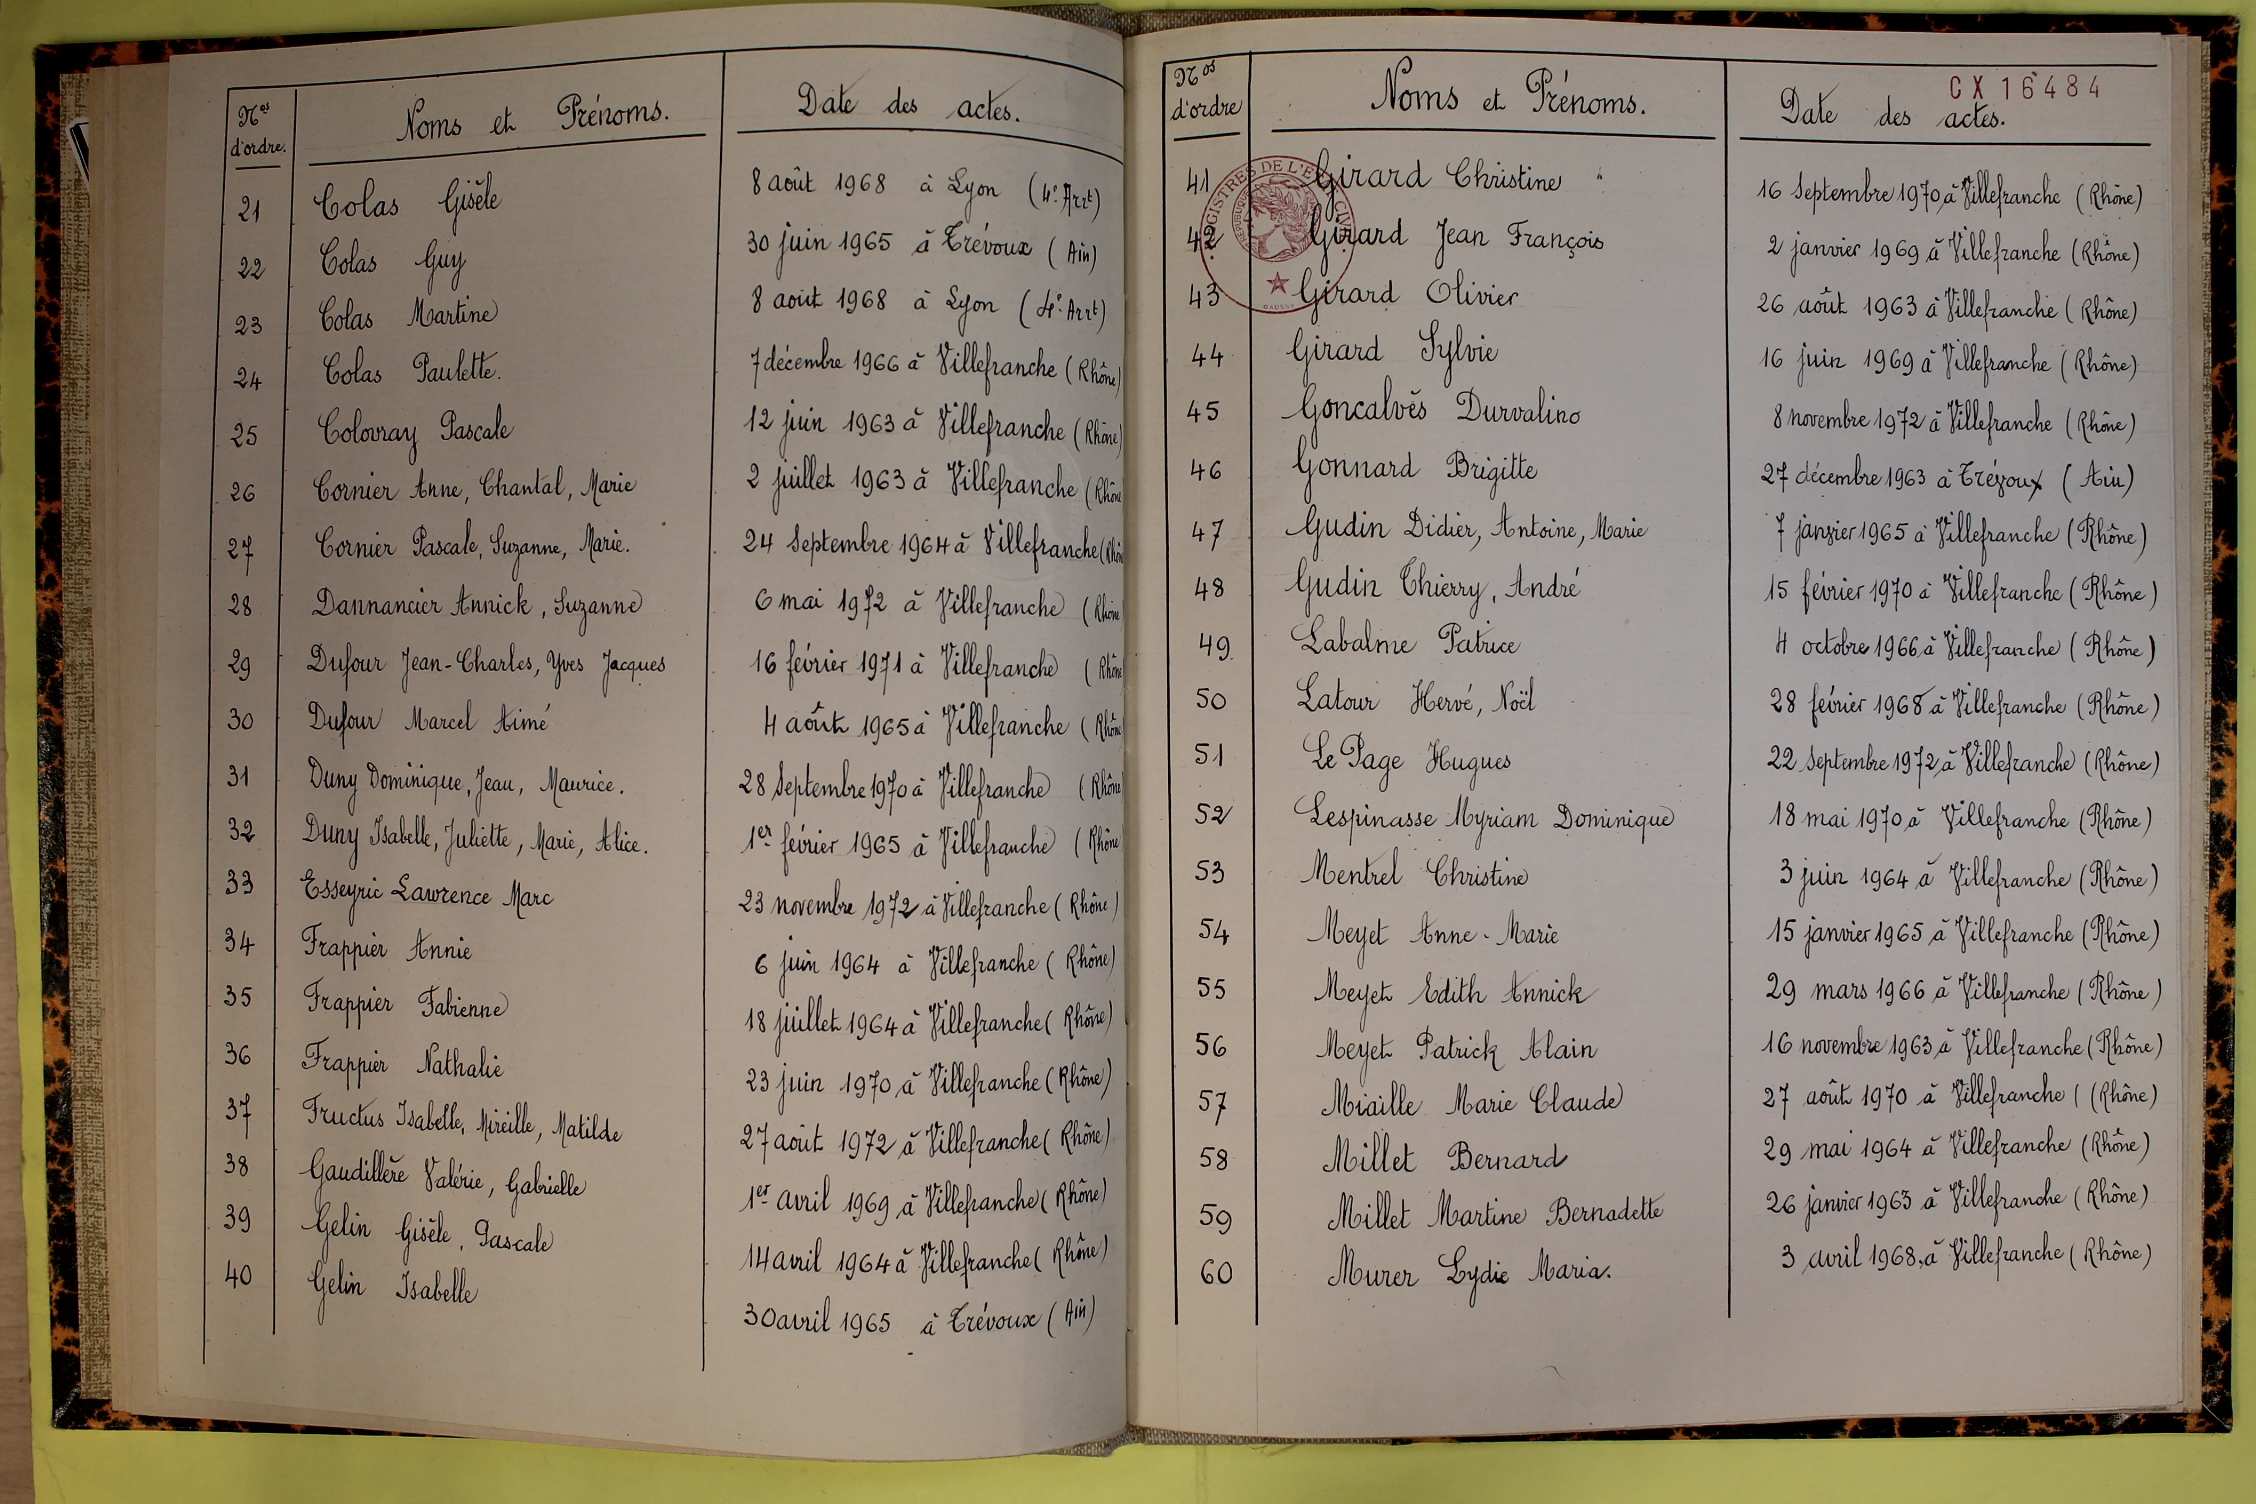 Nos d'ordre. Noms et Prénoms. Date des actes.
21 Colas Gisèle 8 août 1968 à Lyon (4e Arrt)
22 Colas Guy 30 juin 1965 à Trévoux (Ain)
23 Colas Martine 8 août 1968 à Lyon (4e Arrt)
24 Colas Paulette. 7 décembre 1966 à Villefranche (Rhône)
25 Colovray Pascale 12 juin 1963 à Villefranche (Rhône)
26 Cornier Anne, Chantal, Marie 2 juillet 1963 à Villefranche (Rhône
27 Cornier Pascale, Suzanne, Marie. 24 Septembre 1964 à Villefranche (Rhôn
28 Dannancier Annick, Suzanne 6 mai 1972 à Villefranche (Rhône
29 Dufour Jean-Charles, Yves Jacques 16 février 1971 à Villefranche (Rhône
30 Dufour Marcel Aimé 4 août 1965 à Villefranche (Rhône
31 Duny Dominique, Jean, Maurice. 28 Septembre 1970 à Villefranche (Rhône
32 Duny Isabelle, Juliette, Marie, Alice. 1er février 1965 à Villefranche (Rhône
33 Esseyric Lawrence Marc 23 novembre 1972 à Villefranche (Rhône)
34 Frappier Annie 6 juin 1964 à Villefranche (Rhône)
35 Frappier Fabienne 18 juillet 1964 à Villefranche (Rhône)
36 Frappier Nathalie 23 juin 1970 à Villefranche (Rhône)
37 Fructus Isabelle, Mireille, Matilde 27 août 1972 à Villefranche (Rhône)
38 Gaudillère Valérie, Gabrielle 1er avril 1969 à Villefranche (Rhône)
39 Gelin Gisèle, Pascale 14 avril 1964 à Villefranche (Rhône)
40 Gelin Isabelle 30 avril 1965 à Trévoux (Ain)
CX 16484
Nos d'ordre Noms et Prénoms. Date des actes.
41 Girard Christine 16 Septembre 1970 à Villefranche (Rhône)
42 Girard Jean François 2 janvier 1969 à Villefranche (Rhône)
43 Girard Olivier 26 août 1963 à Villefranche (Rhône)
44 Girard Sylvie 16 juin 1969 à Villefranche (Rhône)
45 Goncalvès Durvalino 8 novembre 1972 à Villefranche (Rhône)
46 Gonnard Brigitte 27 décembre 1963 à Trévoux (Ain)
47 Gudin Didier, Antoine, Marie 7 janvier 1965 à Villefranche (Rhône)
48 Gudin Thierry, André 15 février 1970 à Villefranche (Rhône)
49 Labalme Patrice 4 octobre 1966 à Villefranche (Rhône)
50 Latour Hervé, Noël 28 février 1968 à Villefranche (Rhône)
51 Le Page Hugues 22 Septembre 1972 à Villefranche (Rhône)
52 Lespinasse Myriam Dominique 18 mai 1970 à Villefranche (Rhône)
53 Mentrel Christine 3 juin 1964 à Villefranche (Rhône)
54 Meyet Anne-Marie 15 janvier 1965 à Villefranche (Rhône)
55 Meyet Edith Annick 29 mars 1966 à Villefranche (Rhône)
56 Meyet Patrick Alain 16 novembre 1963 à Villefranche (Rhône)
57 Miaille Marie Claude 27 août 1970 à Villefranche ( (Rhône)
58 Millet Bernard 29 mai 1964 à Villefranche (Rhône)
59 Millet Martine Bernadette 26 janvier 1963 à Villefranche (Rhône)
60 Murer Lydie Maria. 3 avril 1968 à Villefranche (Rhône)